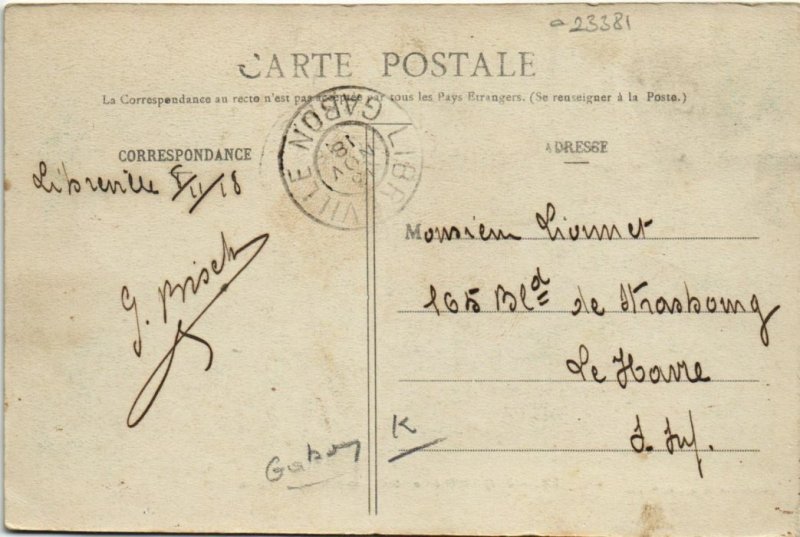 23381
CARTE POSTALE
La Correspondance au recto n'est pas acceptée par tous les Pays Etrangers. (Se renseigner à la Poste.)
CORRESPONDANCE
ADRESSE
LIBREVILLE GABON
NOV
18
Libreville 8/11/18
G. Brisch
Monsieur Lionnet
165 Bld de Strasbourg
Le Havre
S. Inf.
Gabon K